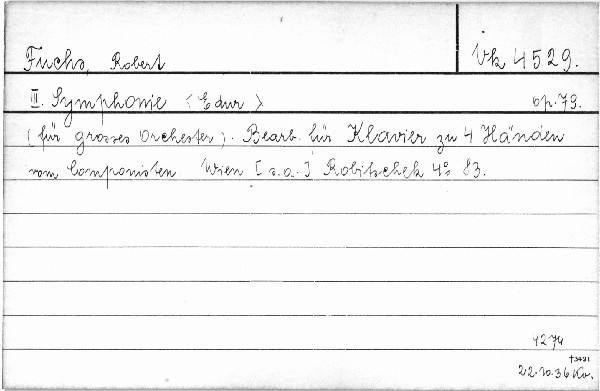 Fuchs, Robert
Vk 4529.
III. Symphonie < Edur > op. 79.
(für grosses Orchester). Bearb. für Klavier zu 4 Händen
vom Componisten Wien [s.a.] Robitschek 4° 83.
4274
†3421
22.10.36 Ko.